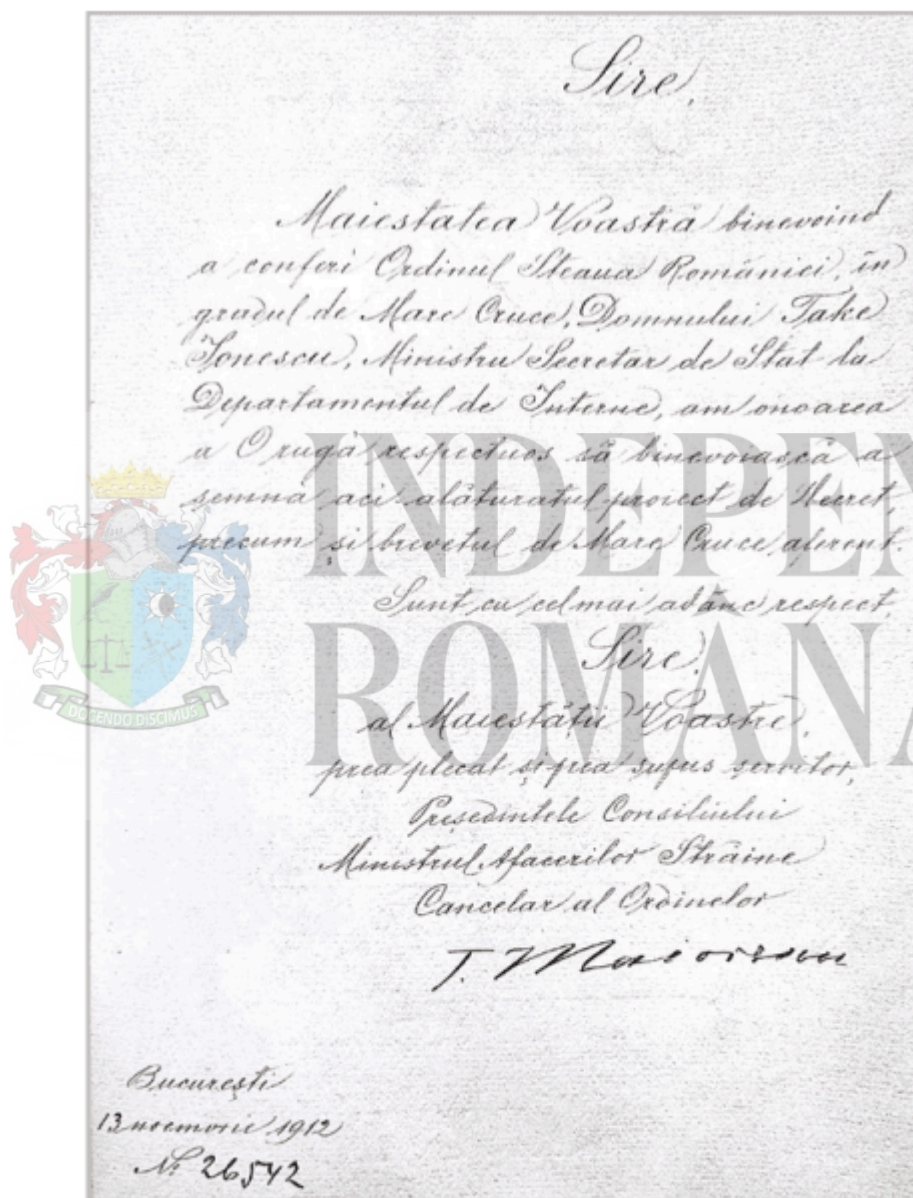 Sire,
Maiestatea Voastră binevoind
a conferi Ordinul Steaua României, în
gradul de Mare Cruce, Domnului Take
Ionescu, Ministru Secretar de Stat la
Departamentul de Interne, am onoarea
a O rugà respectuos să binevoiască a
semna aci-alăturatul proiect de Decret,
precum și brevetul de Mare Cruce aferent.
Sunt cu cel mai adânc respect,
Sire,
al Maiestății Voastre,
prea plecat și prea supus servitor,
Președintele Consiliului
Ministrul Afacerilor Străine
Cancelar al Ordinelor
T. Maiorescu
București
13 noemvrie 1912
Nº 26542
INDEPEN
ROMANA
DOCENDO DISCIMUS